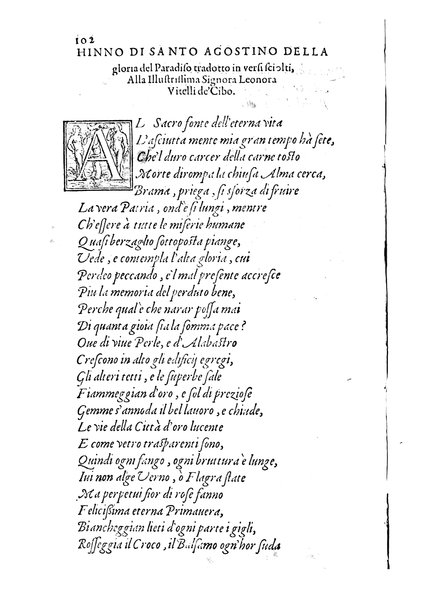 102
HINNO DI SANTO AGOSTINO DELLA
gloria del Paradiso tradotto in versi sciolti,
Alla Illustrissima Signora Leonora
Vitelli de'Cibo.
AL Sacro fonte dell'eterna vita
L'asciutta mente mia gran tempo hà sete,
Ch'el duro carcer della carne tosto
Morte dirompa la chiusa Alma cerca,
Brama, priega, si sforza di fruire
La vera Patria, ond'è sì lungi, mentre
Ch'essere à tutte le miserie humane
Quasi berzaglio sottoposta piange,
Vede, e contempla l'alta gloria, cui
Perdeo peccando, e'l mal presente accresce
Piu la memoria del perduto bene,
Perche qual'è che narar possa mai
Di quanta gioia sia la somma pace?
Oue di viue Perle, e d'Alabastro
Crescono in alto gli edificij egregi,
Gli alteri tetti, e le superbe sale
Fiammeggian d'oro, e sol di preziose
Gemme s'annoda il bel lauoro, e chiude,
Le vie della Città d'oro lucente
E come vetro trasparenti sono,
Quindi ogni fango, ogni bruttura è lunge,
Iui non alge Verno, o Flagra state
Ma perpetui fior di rose fanno
Felicissima eterna Primauera,
Biancheggian lieti d'ogni parte i gigli,
Rosseggia il Croco, il Balsamo ogn'hor suda